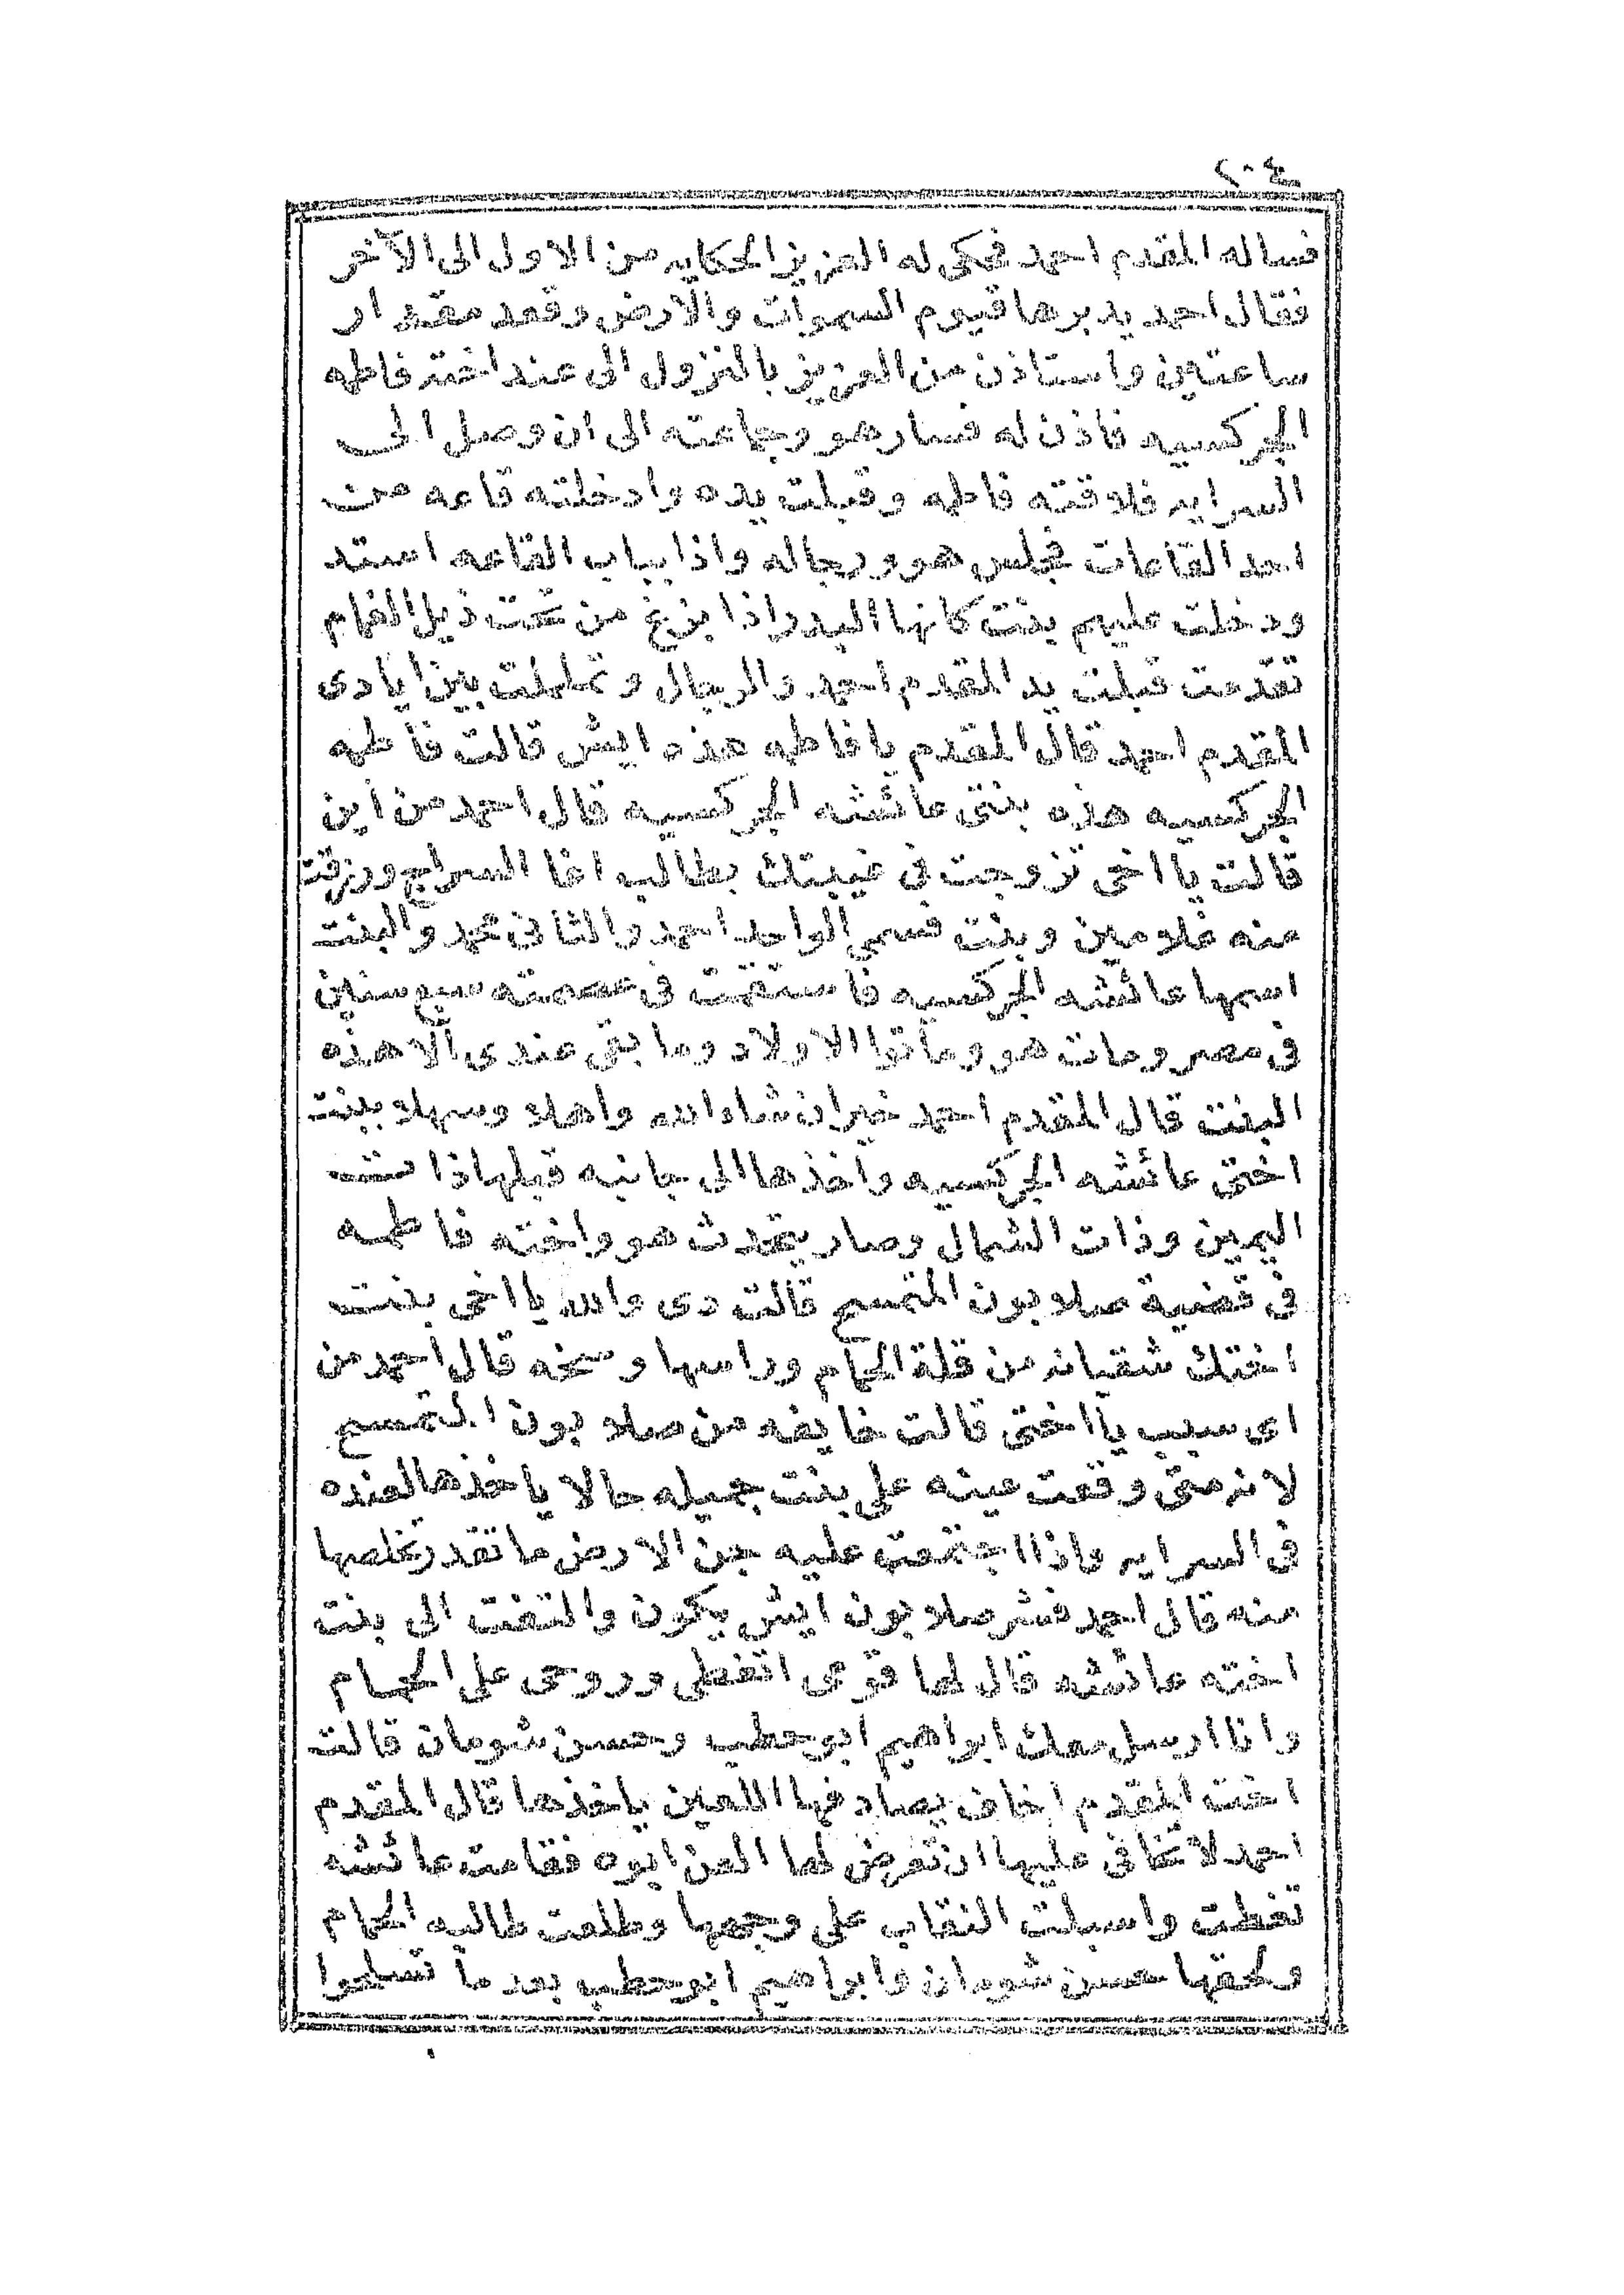 ٢٠٤
فساله المقدم احمد فحكى له العزيز الحكايه من الاول الى الآخر
فقال احمد يدبرها قيوم السموات والارض وقعد مقدار
ساعتين واستاذن من العزيز بالنزول الى عند اخته فاطمه
الجركسيه فاذن له فسار هو وجماعته الى ان وصل الى
السرايه فلاقته فاطمه وقبلت يده وادخلته قاعه من
احد القاعات فجلس هو ورجاله واذا بباب القاعه استد
ودخلت عليهم بنت كانها البدر اذا بزغ من تحت ذيل الغمام
تقدمت قبلت يد المقدم احمد والرجال وتململت بين ايادى
المقدم احمد قال المقدم يا فاطمه هذه ايش قالت فاطمه
الجركسيه هذه بنتى عائشه الجركسيه قال احمد من اين
قالت يا اخى تزوجت فى غيبتك بطالب اغا السراج ورزقت
منه غلامين وبنت فسمى الواحد احمد والثانى محمد والبنت
اسمها عائشه الجركسيه فاستقمت فى عصمته سبع سنين
فى مصر ومات هو وماتوا الاولاد وما بقى عندى الا هذه
البنت قال المقدم احمد خير ان شاء الله واهلا وسهلا ببنت
اختى عائشه الجركسيه واخذها الى جانبه قبلها ذات
اليمين وذات الشمال وصار يتحدث هو واخته فاطمه
فى قضية صلابون المتمسح قالت دى والله يا اخى بنت
اختك شقيانه من قلة الحمام وراسها وسخه قال احمد من
اى سبب يا اختى قالت خايفه من صلابون التمسح
لانه متى وقعت عينه على بنت جميله حالا ياخذها لعنده
فى السرايه واذا اجتمعت عليه جن الارض ما تقدر تخلصها
منه قال احمد فشر صلابون ايش يكون والتفت الى بنت
اخته عائشه قال لها قومى اتغطى وروحى على الحمام
وانا ارسل معك ابراهيم ابو حطب وحسن شومان قالت
اخت المقدم اخاف يصادفها اللعين ياخذها قال المقدم
احمد لا تخافى عليها ان تعرض لها العن ابوه فقامت عائشه
تغطت واسبلت النقاب على وجهها وطلعت طالبه الحمام
ولحقها حسن شومان وابراهيم ابو حطب بعد ما تسلحوا